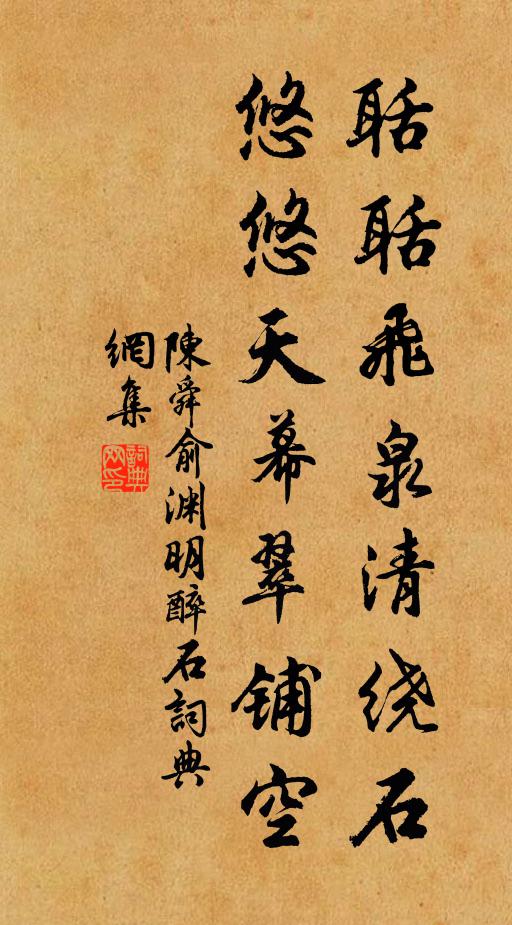 聒聒飛泉清绕石
悠悠天幕翠铺空
陳舜俞渊明醉石詞典
網集
詞典網印